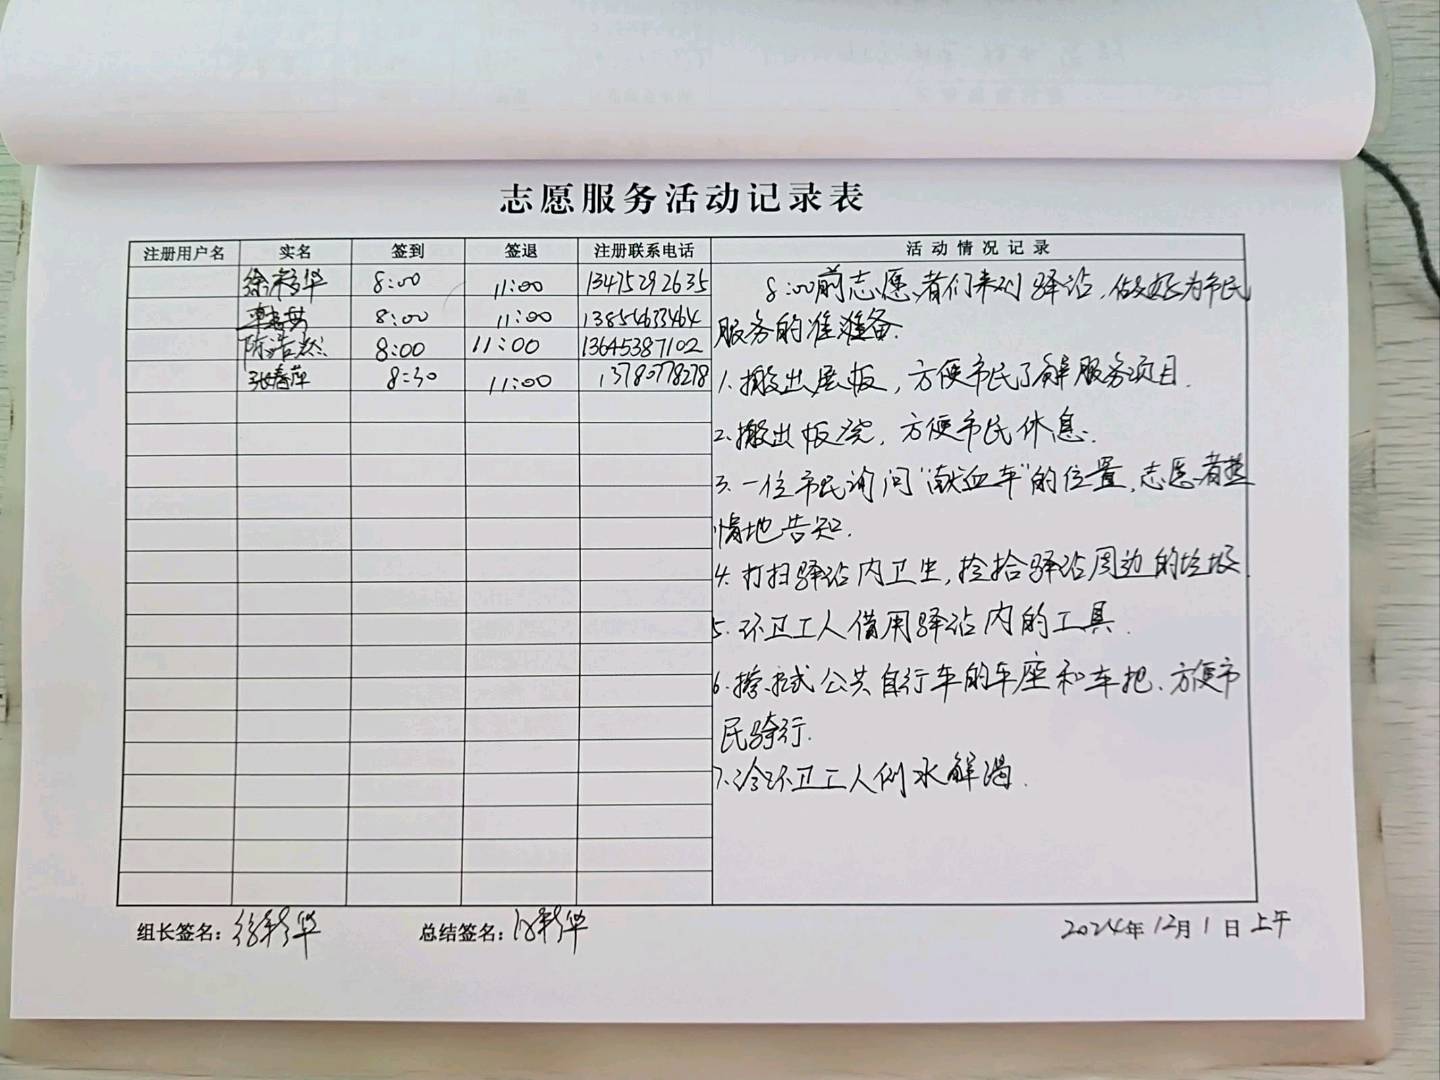 志愿服务活动记录表
注册用户名 实名 签到 签退 注册联系电话 活动情况记录
徐彩华 8:00 11:00 13475292635
8:00 11:00 13854633464
陈浩然 8:00 11:00 13645387102
张春萍 8:30 11:00 13780778278
8:00前志愿者们来到驿站,做好为市民
服务的准准备.
1.搬出展板,方便市民了解服务项目.
2.搬出板凳,方便市民休息.
3.一位市民询问“献血车”的位置,志愿者热
情地告知.
4.打扫驿站内卫生,捡拾驿站周边的垃圾.
5.环卫工人借用驿站内的工具.
6.擦拭公共自行车的车座和车把、方便市
民骑行.
7.给环卫工人倒水解渴.
组长签名:徐彩华 总结签名:徐彩华 2024年12月1日上午